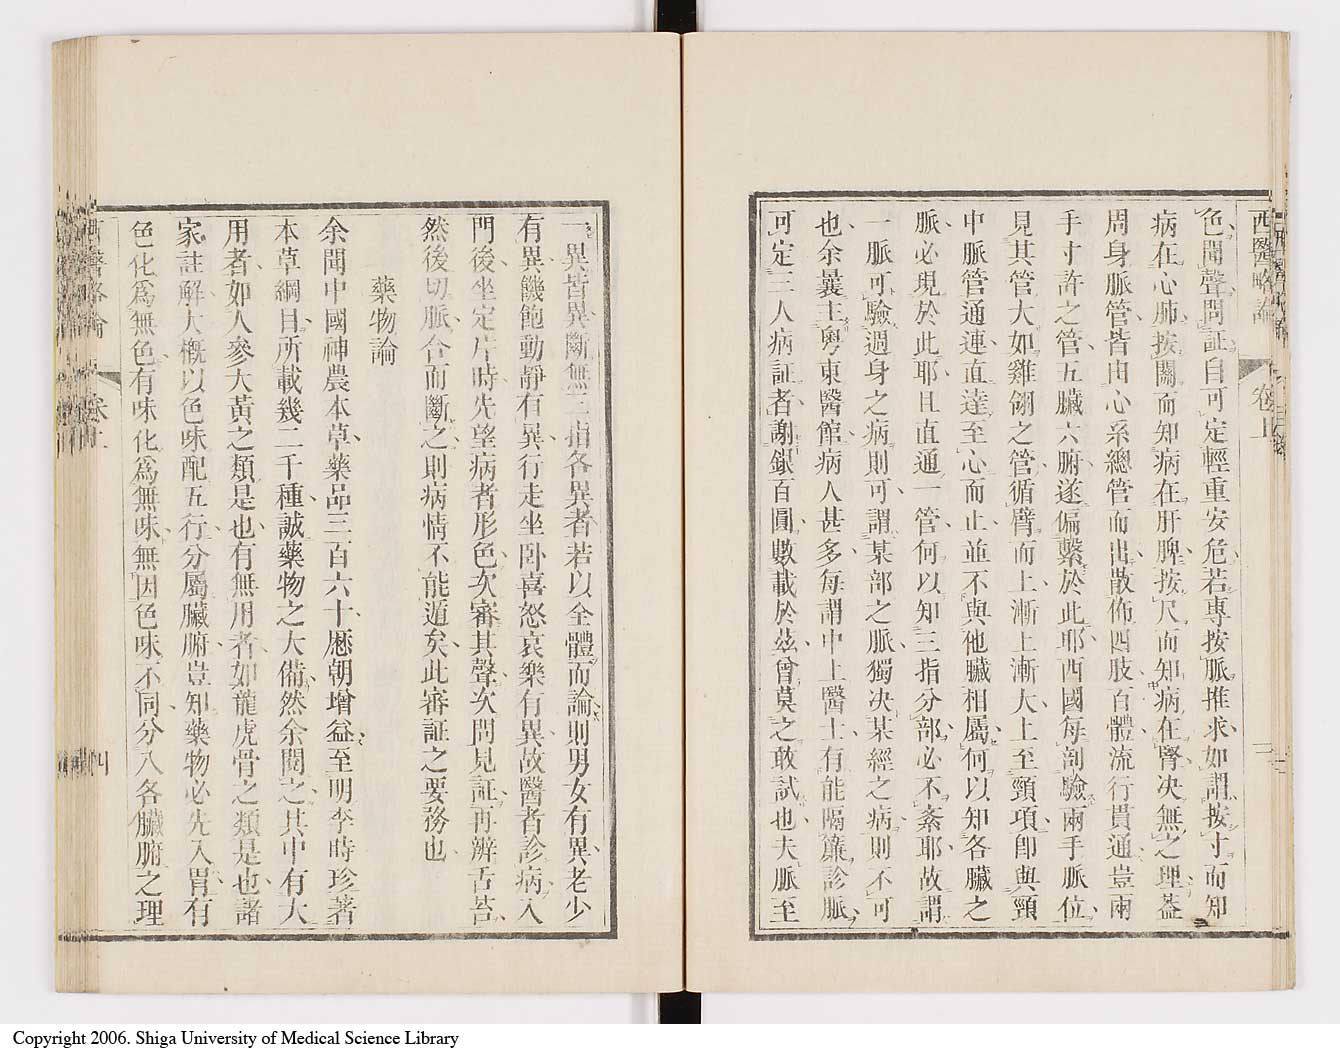 西醫略論 卷上
色聞聲問証自可定輕重安危若專按脈推求如謂按寸而知
病在心肺按關而知病在肝脾按尺而知病在腎决無之理蓋
周身脈管皆由心系總管而出散佈四肢百體流行貫通豈兩
手寸許之管五臟六腑遂偏繫於此耶西國每剖驗兩手脈位
見其管大如雞翎之管循臂而上漸上漸大上至頸項卽與頸
中脈管通連直達至心而止並不與他臟相屬何以知各臟之
脈必現於此耶且直通一管何以知三指分部必不紊耶故謂
一脈可驗週身之病則可謂某部之脈獨决某經之病則不可
也余曩主粵東醫館病人甚多每謂中土醫士有能隔簾診脈
可定三人病証者謝銀百圓數載於茲曾莫之敢試也夫脈至
一異皆異斷無三指各異者若以全體而論則男女有異老少
有異饑飽動靜有異行走坐卧喜怒哀樂有異故醫者診病入
門後坐定片時先望病者形色次審其聲次問見証再辨舌苔
然後切脈合而斷之則病情不能遁矣此審証之要務也
藥物論
余聞中國神農本草藥品三百六十厯朝增益至明李時珍著
本草綱目所載幾二千種誠藥物之大備然余閱之其中有大
用者如人參大黃之類是也有無用者如龍虎骨之類是也諸
家註解大槪以色味配五行分屬臟腑豈知藥物必先入胃有
色化爲無色有味化爲無味無因色味不同分入各臟腑之理
西醫略論 卷上 四
Copyright 2006. Shiga University of Medical Science Library